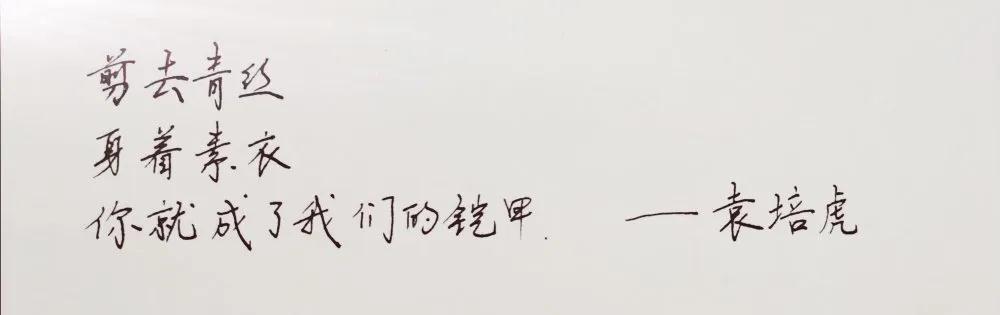 剪去青丝
身着素衣
你就成了我们的铠甲. ——袁培虎